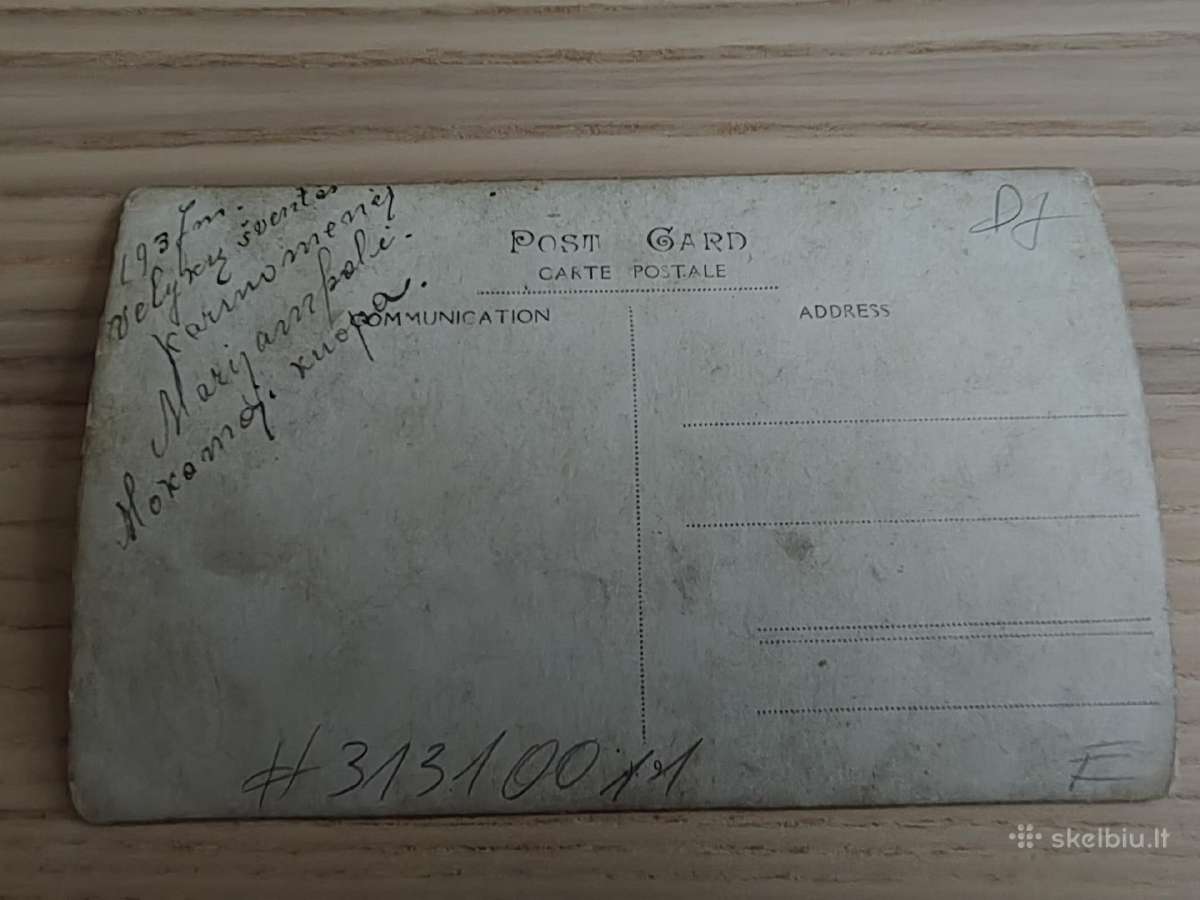 1937m.
Velykų šventės
kariuomenėj
Marijampolėj.
Mokomoj. kuopa.
POST CARD
CARTE POSTALE
COMMUNICATION
ADDRESS
DJ
#31310011
E
skelbiu.lt